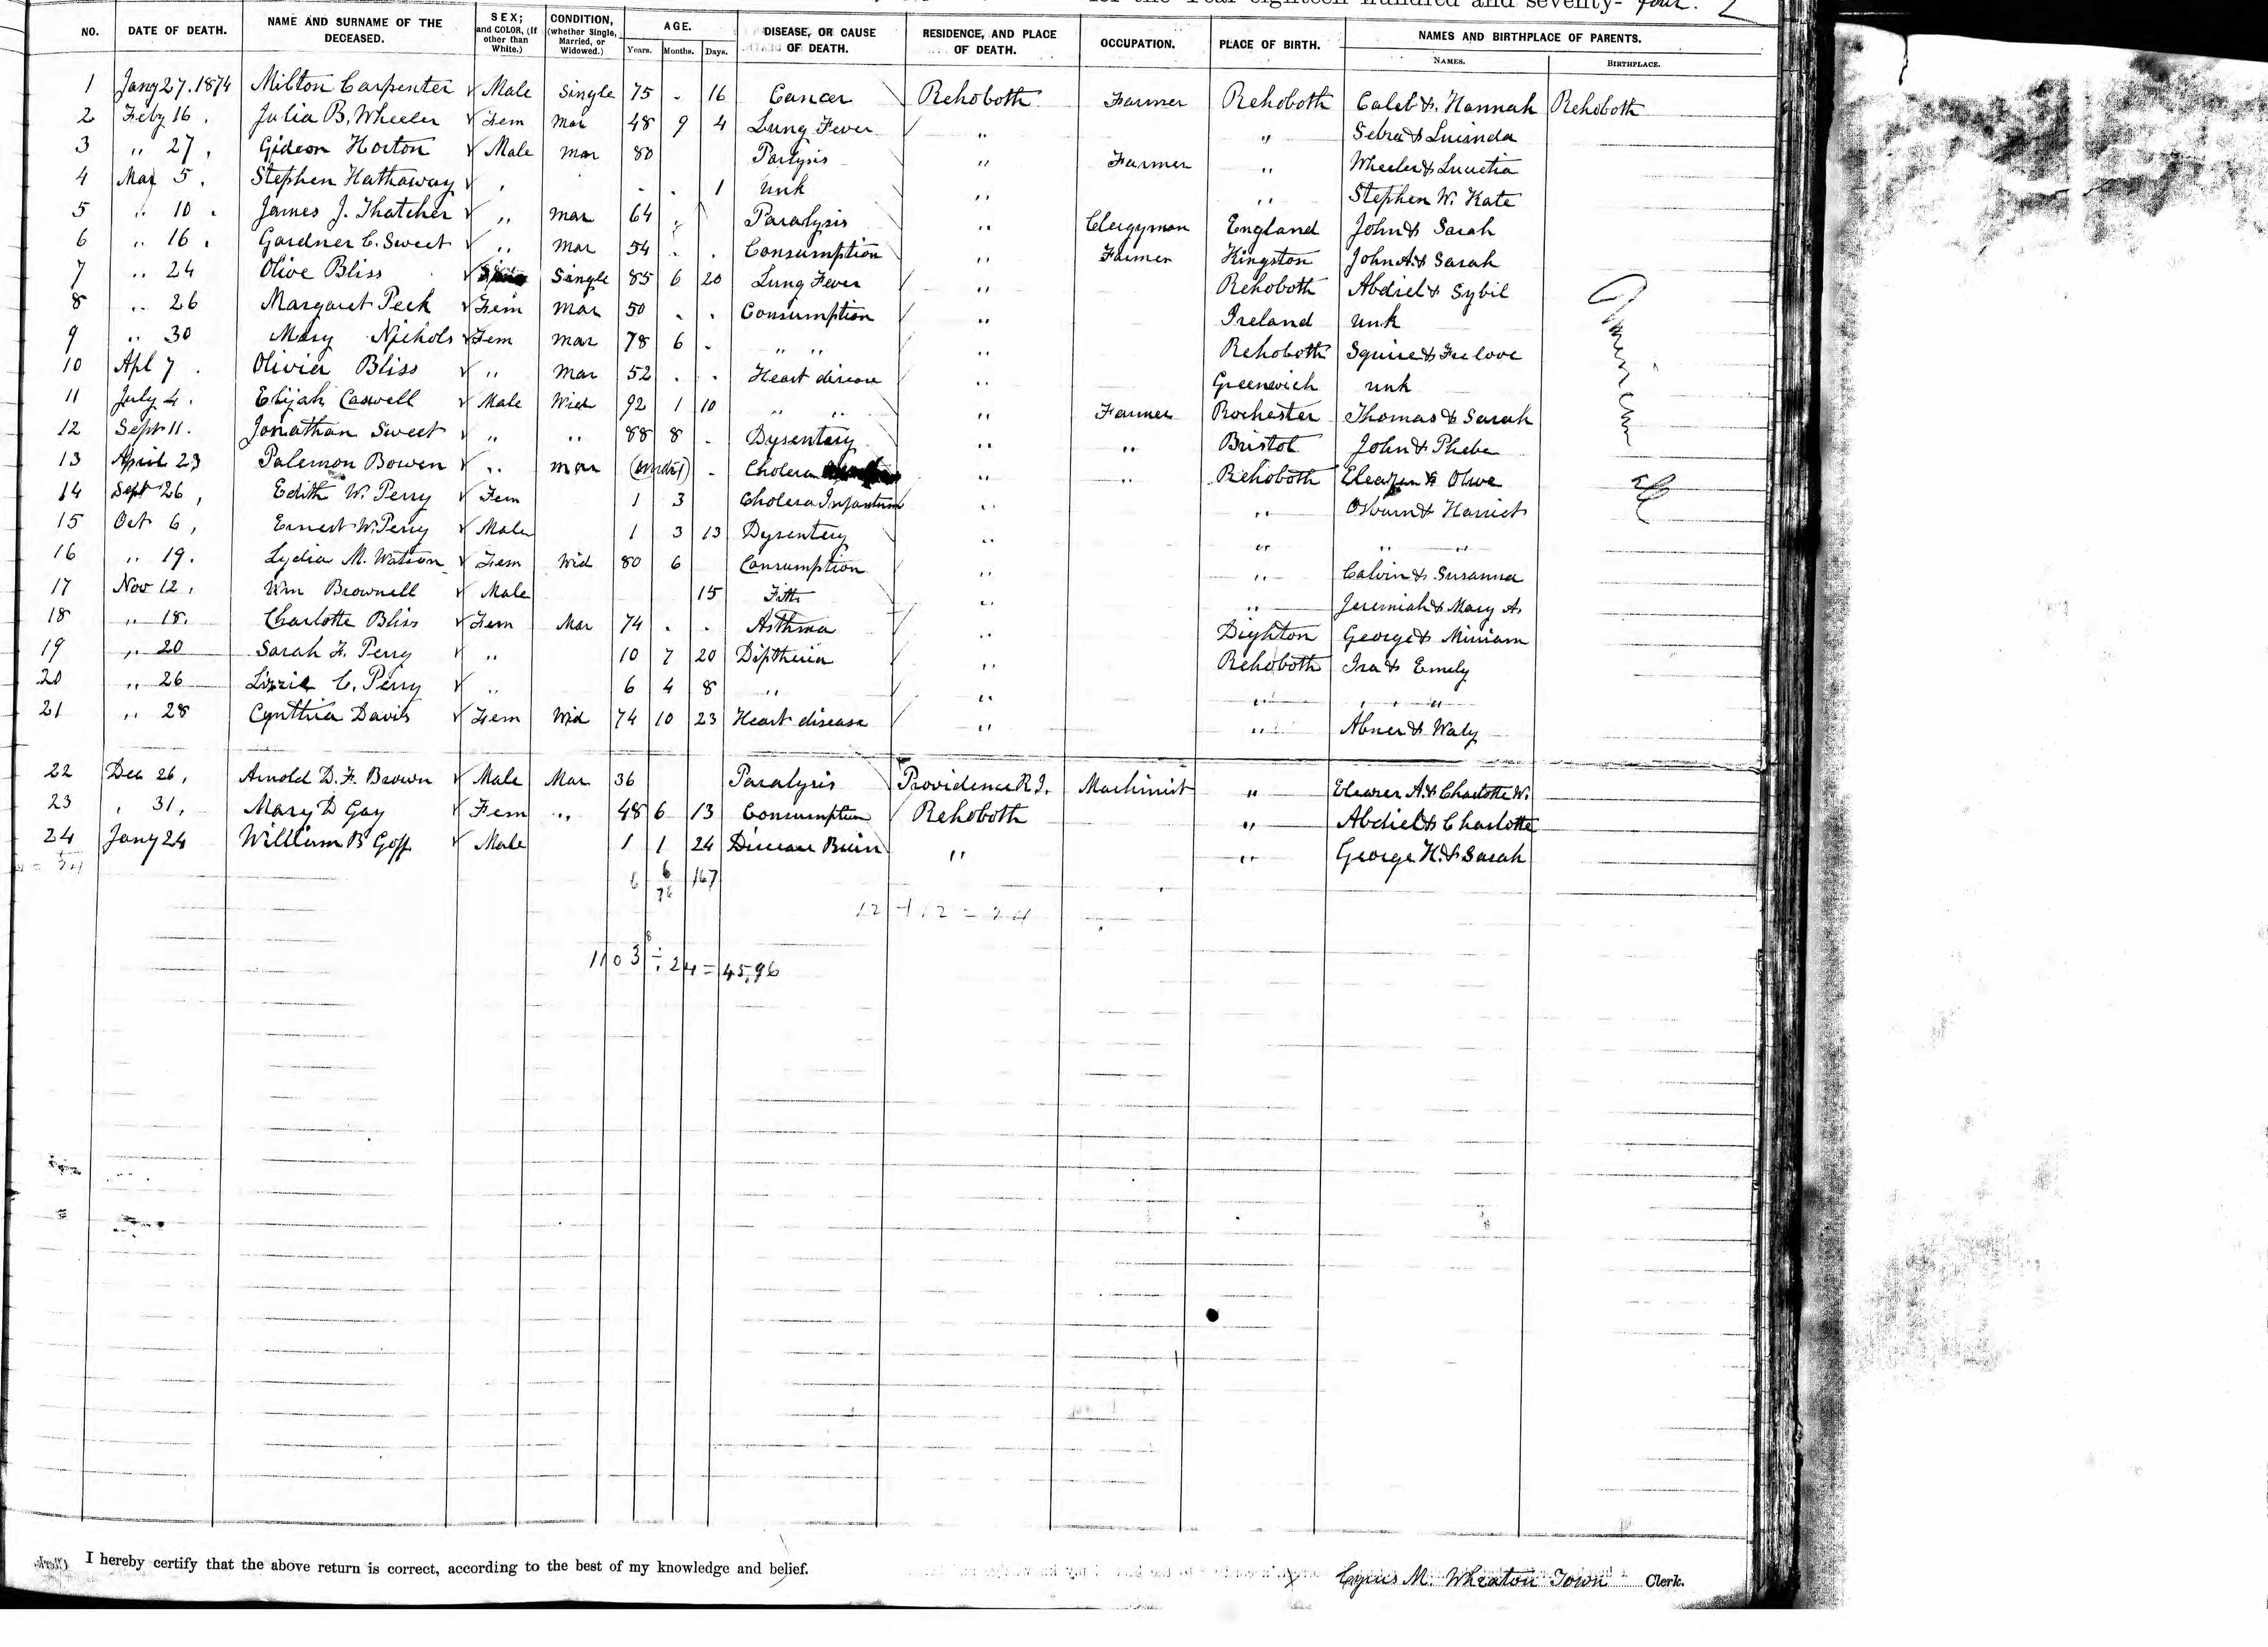 for the Year eighteen hundred and seventy- four. 2
NO. DATE OF DEATH. NAME AND SURNAME OF THE DECEASED. SEX; and COLOR, (if other than White.) CONDITION, (whether Single, Married, or Widowed.) AGE. Years. Months. Days. DISEASE, OR CAUSE OF DEATH. RESIDENCE, AND PLACE OF DEATH. OCCUPATION. PLACE OF BIRTH. NAMES AND BIRTHPLACE OF PARENTS. NAMES. BIRTHPLACE.
1 Jany 27. 1874 Milton Carpenter Male Single 75 . 16 Cancer Rehoboth Farmer Rehoboth Caleb & Hannah Rehoboth
2 Feby 16. Julia B. Wheeler Fem Mar 48 9 4 Lung Fever " " Sebra & Lucinda
3 " 27, Gideon Horton Male Mar 80 " Farmer " Wheeler & Lucretia
4 Mar 5. Stephen Hathaway , . . 1 unk " " Stephen W. Kate
5 " 10. James J. Thatcher " Mar 64 Paralysis " Clergyman England John & Sarah
6 " 16. Gardner C. Sweet " Mar 54 . . Consumption " Farmer Kingston John A. & Sarah
7 " 24 Olive Bliss Single 85 6 20 Lung Fever " Rehoboth Abdiel & Sybil
8 " 26 Margaret Peck Fem Mar 50 . . Consumption " Ireland unk
9 " 30 Mary Nichols Fem Mar 78 6 . " " " Rehoboth Squire & Freelove
10 Apl 7. Olivia Bliss " Mar 52 . . Heart disease " Greenwich unk
11 July 4. Elijah Caswell Male Wid 92 1 10 " " " Farmer Rochester Thomas & Sarah
12 Sept 11. Jonathan Sweet " " 88 8 . Dysentery " " Bristol John & Phebe
13 April 23 Palemon Bowen " Mar . Cholera " " Rehoboth Eleazer & Olive
14 Sept 26, Edith W. Perry Fem 1 3 Cholera Infantum " " Osburn & Harriet
15 Oct 6, Ernest W. Perry Male 1 3 13 Dysentery " " " "
16 " 19. Lydia M. Watson Fem Wid 80 6 Consumption " " Calvin & Susanna
17 Nov 12. Wm Brownell Male 15 Fitts " " Jeremiah & Mary A.
18 " 18. Charlotte Bliss Fem Mar 74 . . Asthma " Dighton George & Miriam
19 " 20 Sarah F. Perry " 10 7 20 Diptheria " Rehoboth Ira & Emely
20 " 26 Lizzie C. Perry " 6 4 8 " " " " "
21 " 28 Cynthia Davis Fem Wid 74 10 23 Heart disease " " Abner & Waly
22 Dec 26, Arnold D. F. Brown Male Mar 36 Paralysis Providence R.I. Machinist " Eleazer A. & Charlotte W.
23 , 31, Mary D Gay Fem " 48 6 13 Consumption Rehoboth " Abdiel & Charlotte
24 Jany 24 William B Goff Male 1 1 24 Disease Brain " " George H. & Sarah
6 6 167
76
12 + 12 = 24
1103 8 ÷ 24 = 45,96
American
I hereby certify that the above return is correct, according to the best of my knowledge and belief.
Cyrus M. Wheaton Town Clerk.